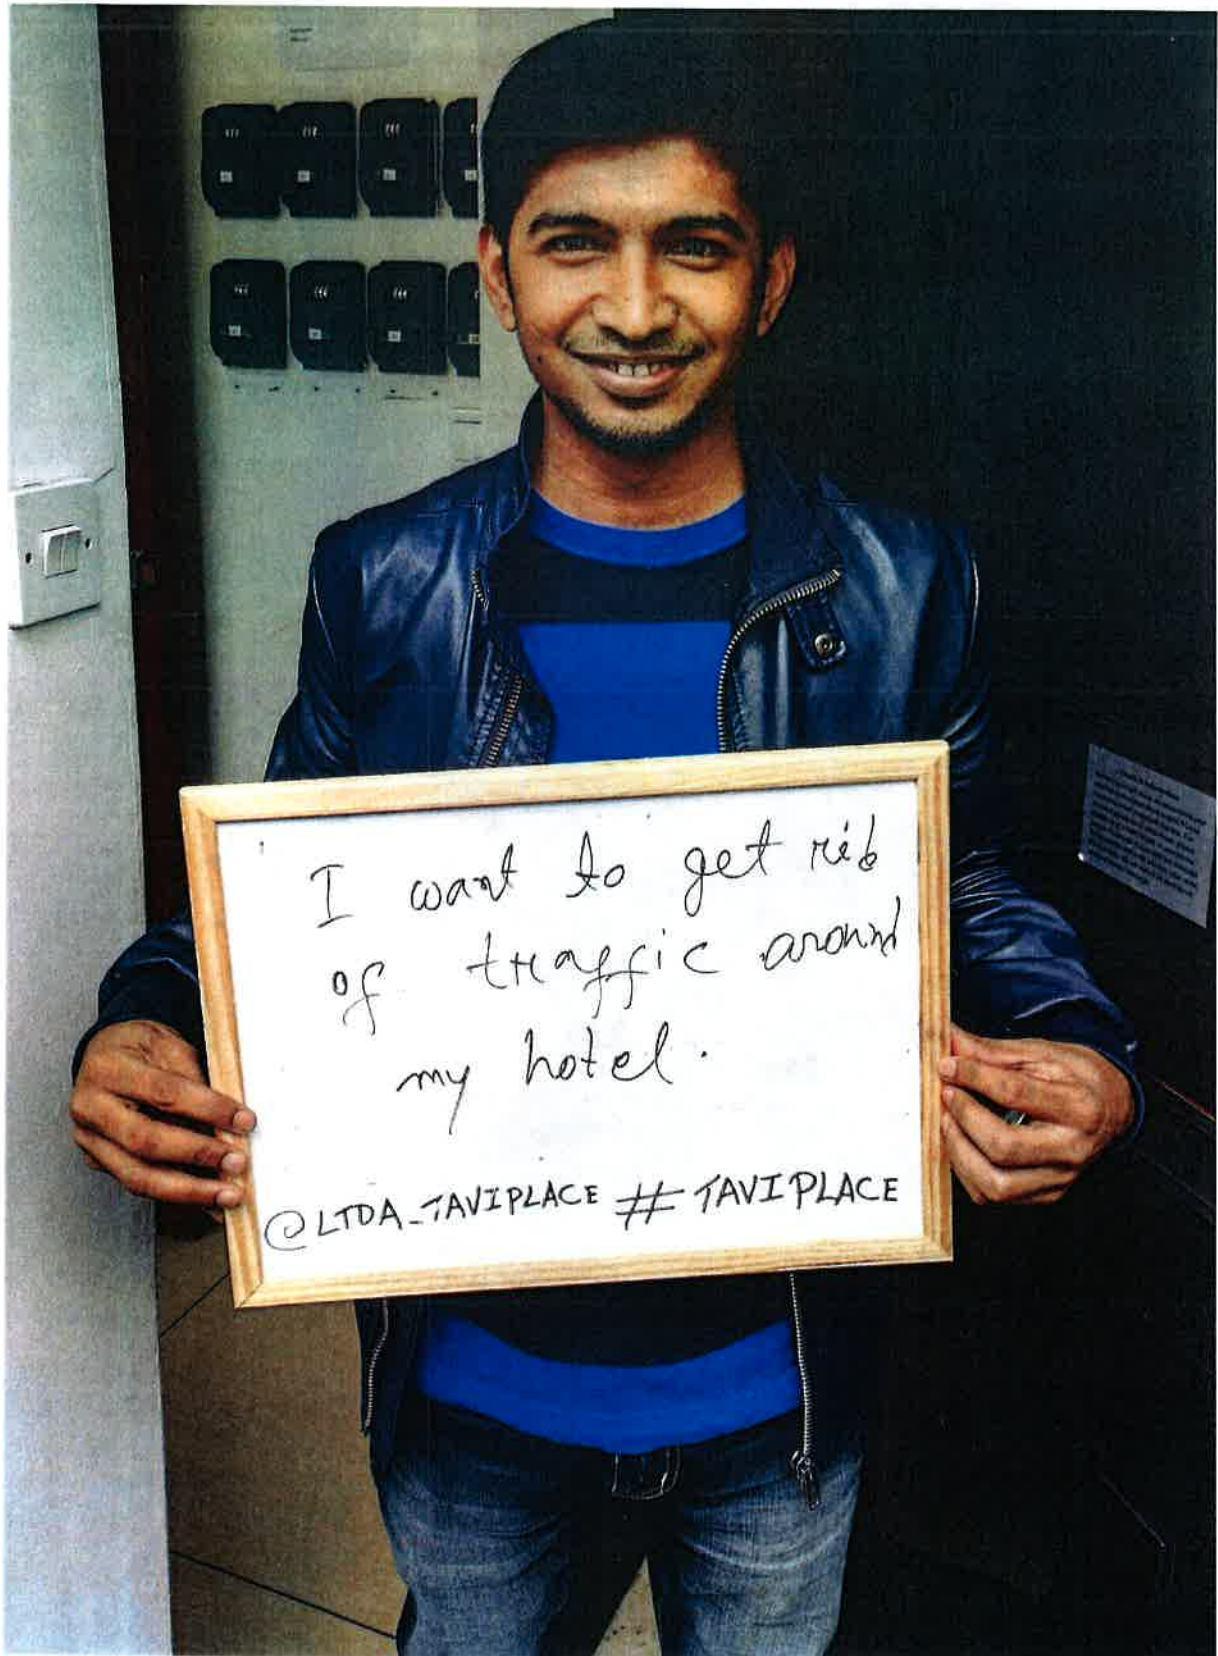 I want to get rid
of traffic around
my hotel.
@LTDA_TAVIPLACE # TAVIPLACE